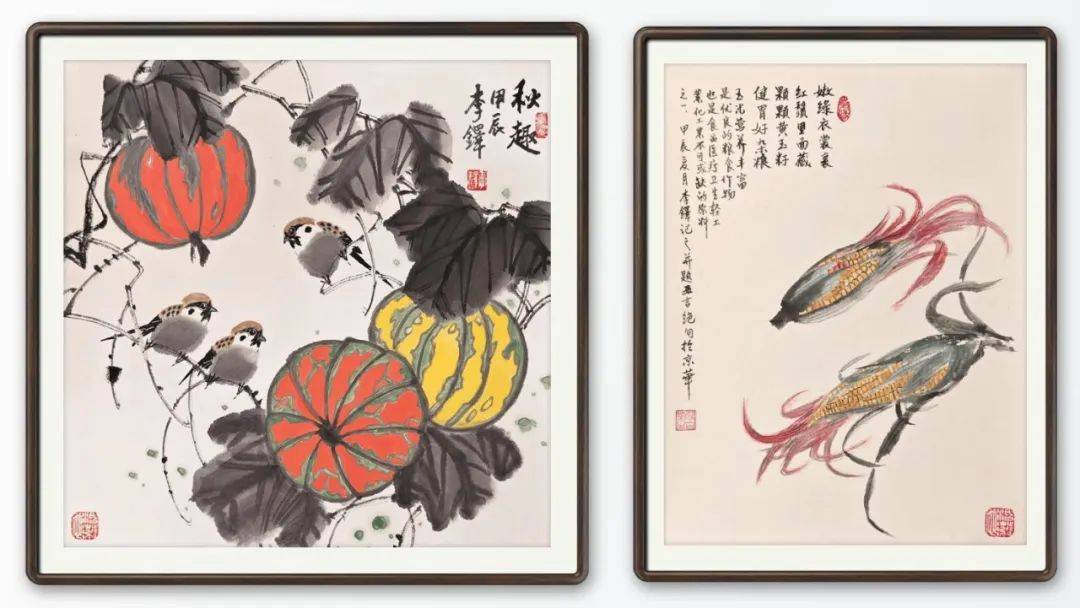 秋趣
甲辰
李鐸
嫩綠衣裳裹
紅鬚里面藏
顆顆黃玉籽
健胃好杂粮
玉米营养丰富
是优良的粮食作物
也是食品医疗卫生轻工
業化工業不可或缺的原料
之一、甲辰夏月李鐸记之并题五言绝句於京華